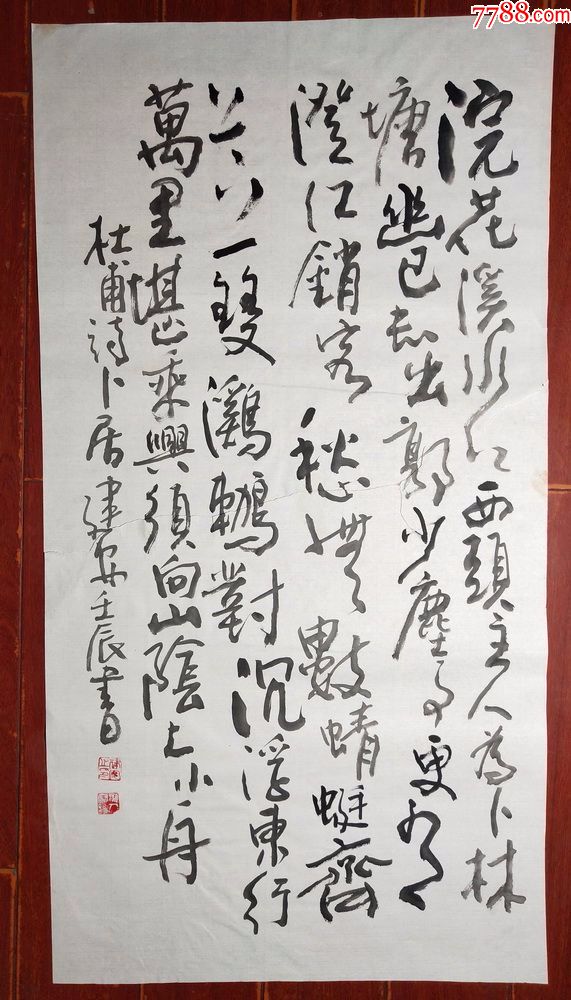 7788.com
浣花溪水水西頭主人為卜林
塘幽已知出郭少塵事更有
澄江銷客愁無數蜻蜓齊
上下一雙鸂鶒對沉浮東行
萬里堪乘興須向山陰上小舟
杜甫詩卜居建安壬辰書